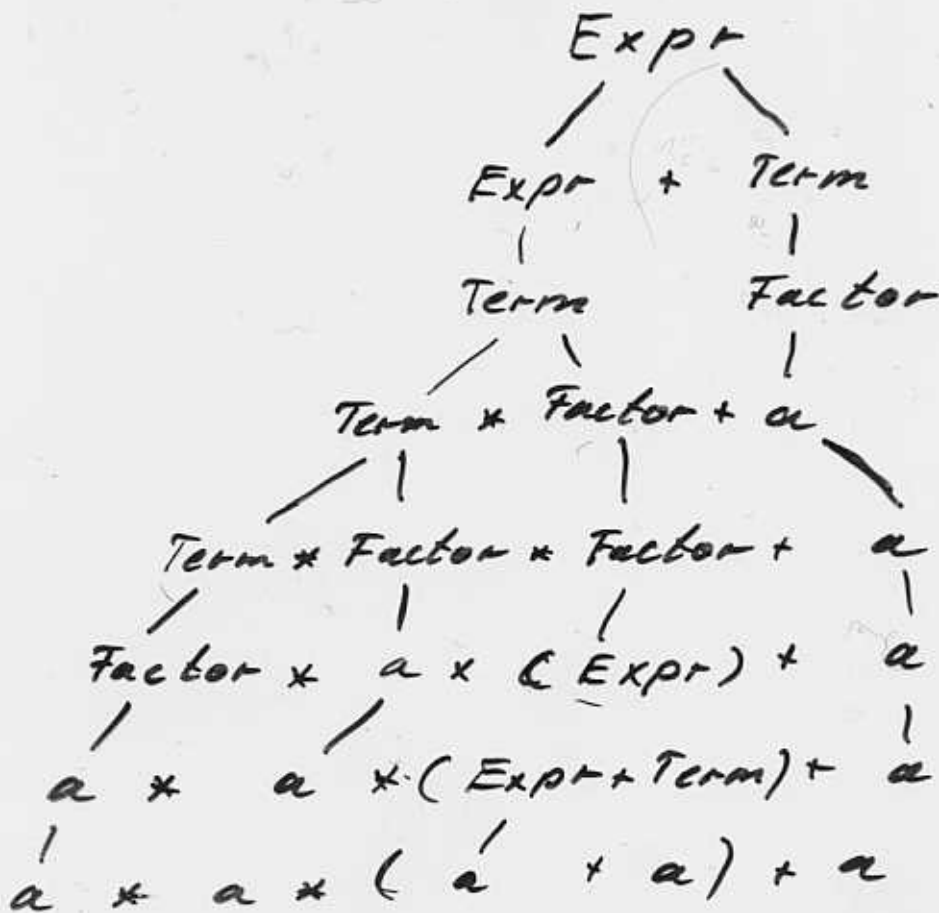 Expr
Expr + Term
Term Factor
Term * Factor + a
Term * Factor * Factor + a
Factor * a * (Expr) + a
a * a * (Expr + Term) + a
a * a * (a + a) + a